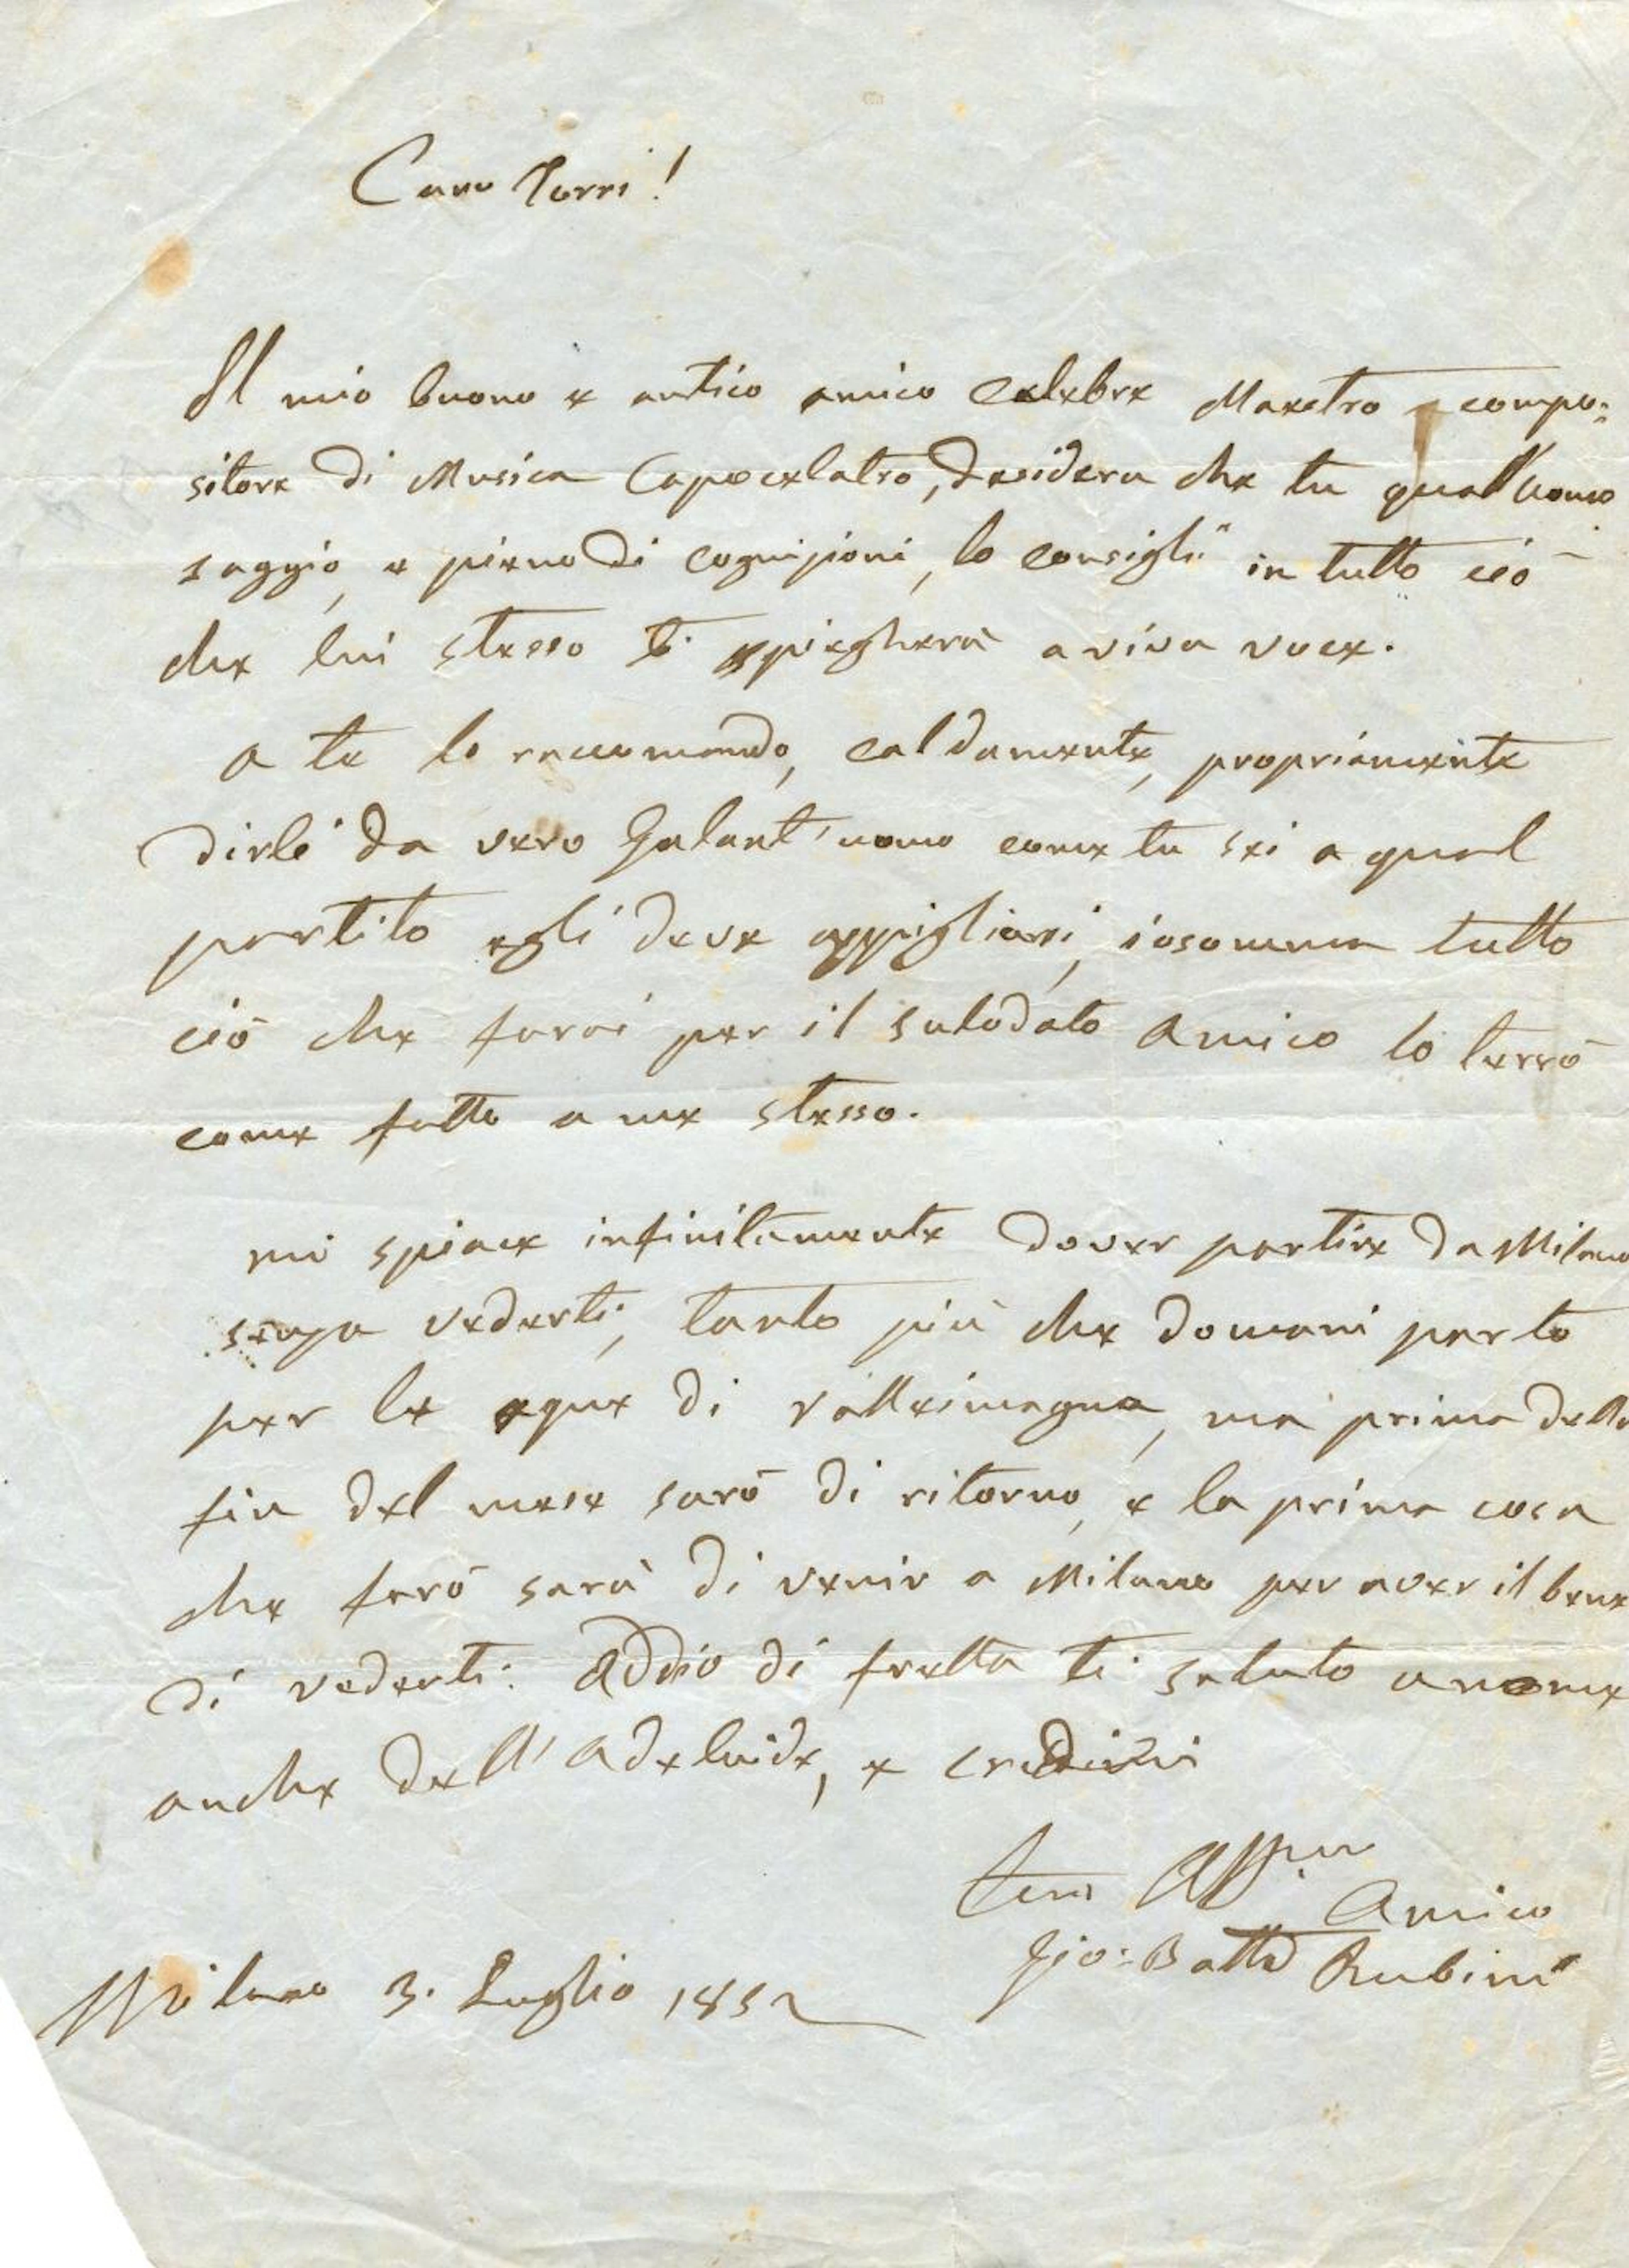 Caro Torri!
Il mio buono e antico amico Celebre Maestro e compo=
sitore di Musica Capecelatro, desidera che tu qual'uomo
saggio, e pieno di cognizioni, lo consigli in tutto ciò
che lui stesso ti spiegherà a viva voce.
a te lo raccomando, caldamente, propriamente
dirle da vero Galant'uomo come tu sei a qual
partito egli deve appigliarsi, insomma tutto
ciò che farai per il sulodato amico lo terrò
come fatto a me stesso.
mi spiace infinitamente dover partire da Milano
senza vederti, tanto più che domani parto
per le aque di Valleimagna, ma prima della
fin del mese sarò di ritorno, e la prima cosa
che farò sarà di venir a Milano per aver il bene
di vederti: addio di fretta ti saluto a nome
anche dell'Adelaide, e credimi
tuo Aff.mo Amico
Gio: Batta Rubini
Milano 3. Luglio 1852